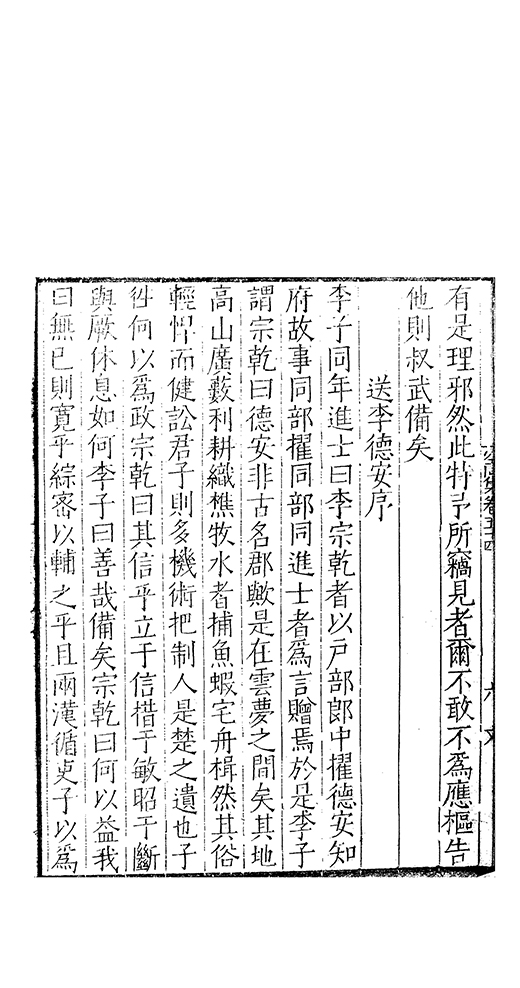 有是理邪然此特予所竊見者爾不敢不爲應樞告
他則叔武備矣
送李德安序
李子同年進士曰李宗乾者以戸部郎中擢德安知
府故事同部擢同部同進士者爲言贈焉於是李子
謂宗乾曰德安非古名郡歟是在雲夢之間矣其地
高山廣藪利耕織樵牧水者捕魚蝦宅舟楫然其俗
輕悍而健訟君子則多機術把制人是楚之遺也子
徃何以爲政宗乾曰其信乎立于信措于敏昭于斷
與厥休息如何李子曰善哉備矣宗乾曰何以益我
曰無已則寛乎綜密以輔之乎且兩漢循吏子以爲
卷五十四
六